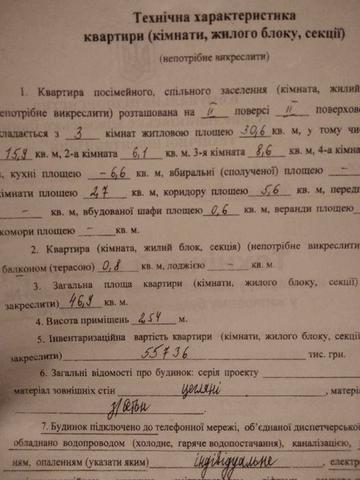 Технічна характеристика
квартири (кімнати, жилого блоку, секції)
(непотрібне викреслити)
1. Квартира посімейного, спільного заселення (кімната, жилий
непотрібне викреслити) розташована на ІІ поверсі ІІ поверхово
кладається з 3 кімнат жилповою площею 30,6 кв. м, у тому чи
15,9 кв. м, 2-а кімната 6,1 кв. м. 3-я кімната 8,6 кв. м, 4-а кімна
а, кухні площею – 6,6 кв. м, вбиральні (сполученої) площею –
кімнати площею 2,7 кв. м, коридору площею 5,6 кв. м, перед
– кв. м, вбудованої шафи площею 0,6 кв. м, веранди площею
комори площею – кв. м.
2. Квартира (кімната, жилий блок, секція) (непотрібне викреслити
балконом (терасою) 0,8 кв. м, лоджією – кв. м.
3. Загальна площа квартири (кімнати, жилого блоку, секції)
закреслити) 46,9 кв. м.
4. Висота приміщень 2,54 м.
5. Інвентаризаційна вартість квартири (кімнати, жилого блоку, секції
закреслити) 55736 тис. грн.
6. Загальні відомості про будинок: серія проекту
матеріал зовнішніх стін цегляні , матеріа
з/бетон
7. Будинок підключено до телефонної мережі, об'єднаної диспетчерської
обладнано водопроводом (холодне, гаряче водопостачання), каналізацією,
ням, опаленням (указати яким) індивідуальне , електро